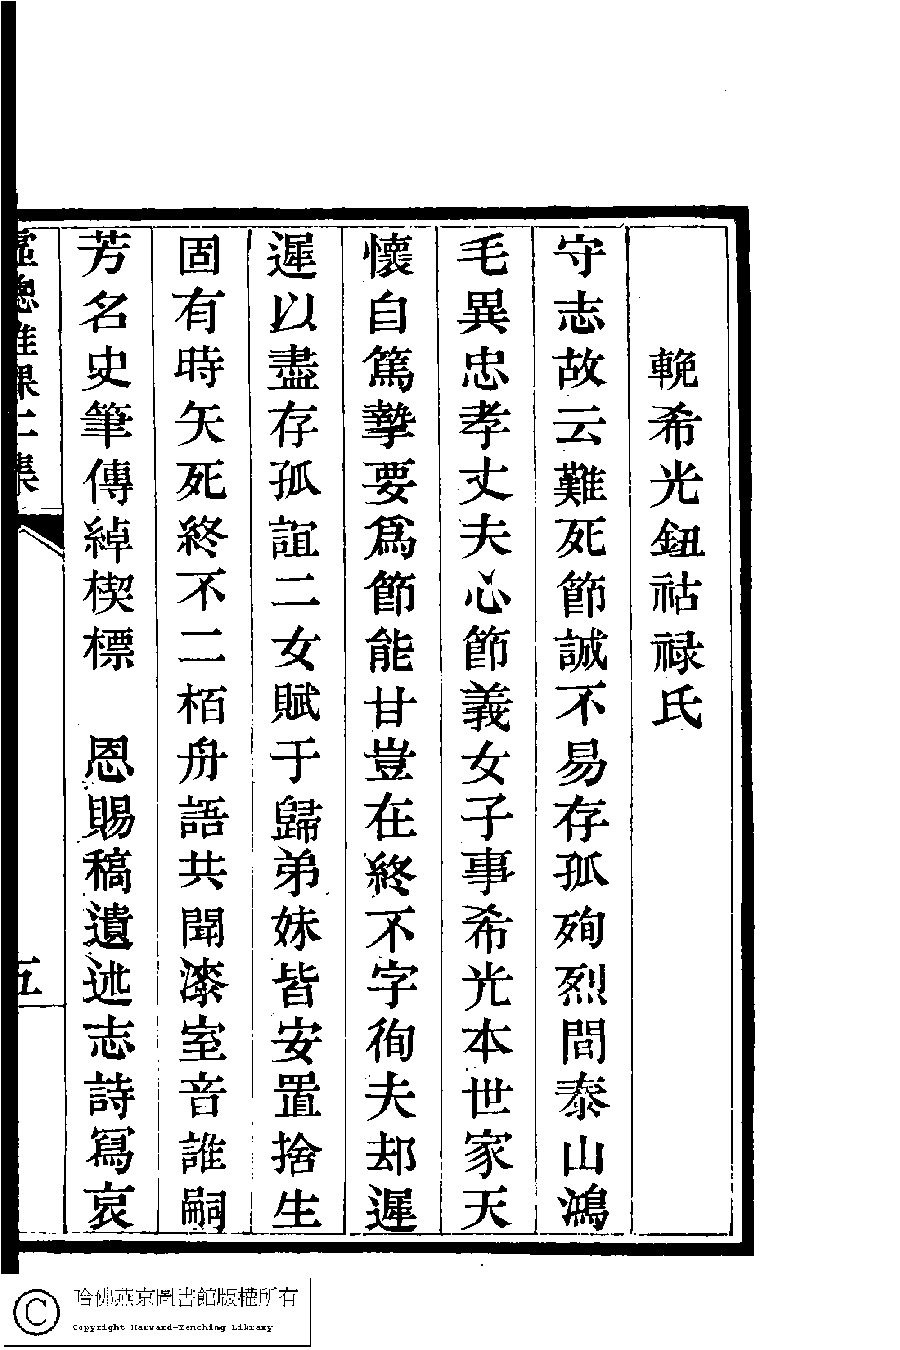 輓希光鈕祜祿氏
守志故云難死節誠不易存孤殉烈間泰山鴻
毛異忠孝丈夫心節義女子事希光本世家天
懷自篤摯要爲節能甘豈在終不字徇夫却遲
遲以盡存孤誼二女賦于歸弟妹皆安置捨生
固有時矢死終不二栢舟語共聞漆室音誰嗣
芳名史筆傳綽楔標　恩賜稿遺述志詩寫哀
二集
五
哈佛燕京圖書館版權所有
Copyright Harvard-Yenching Library